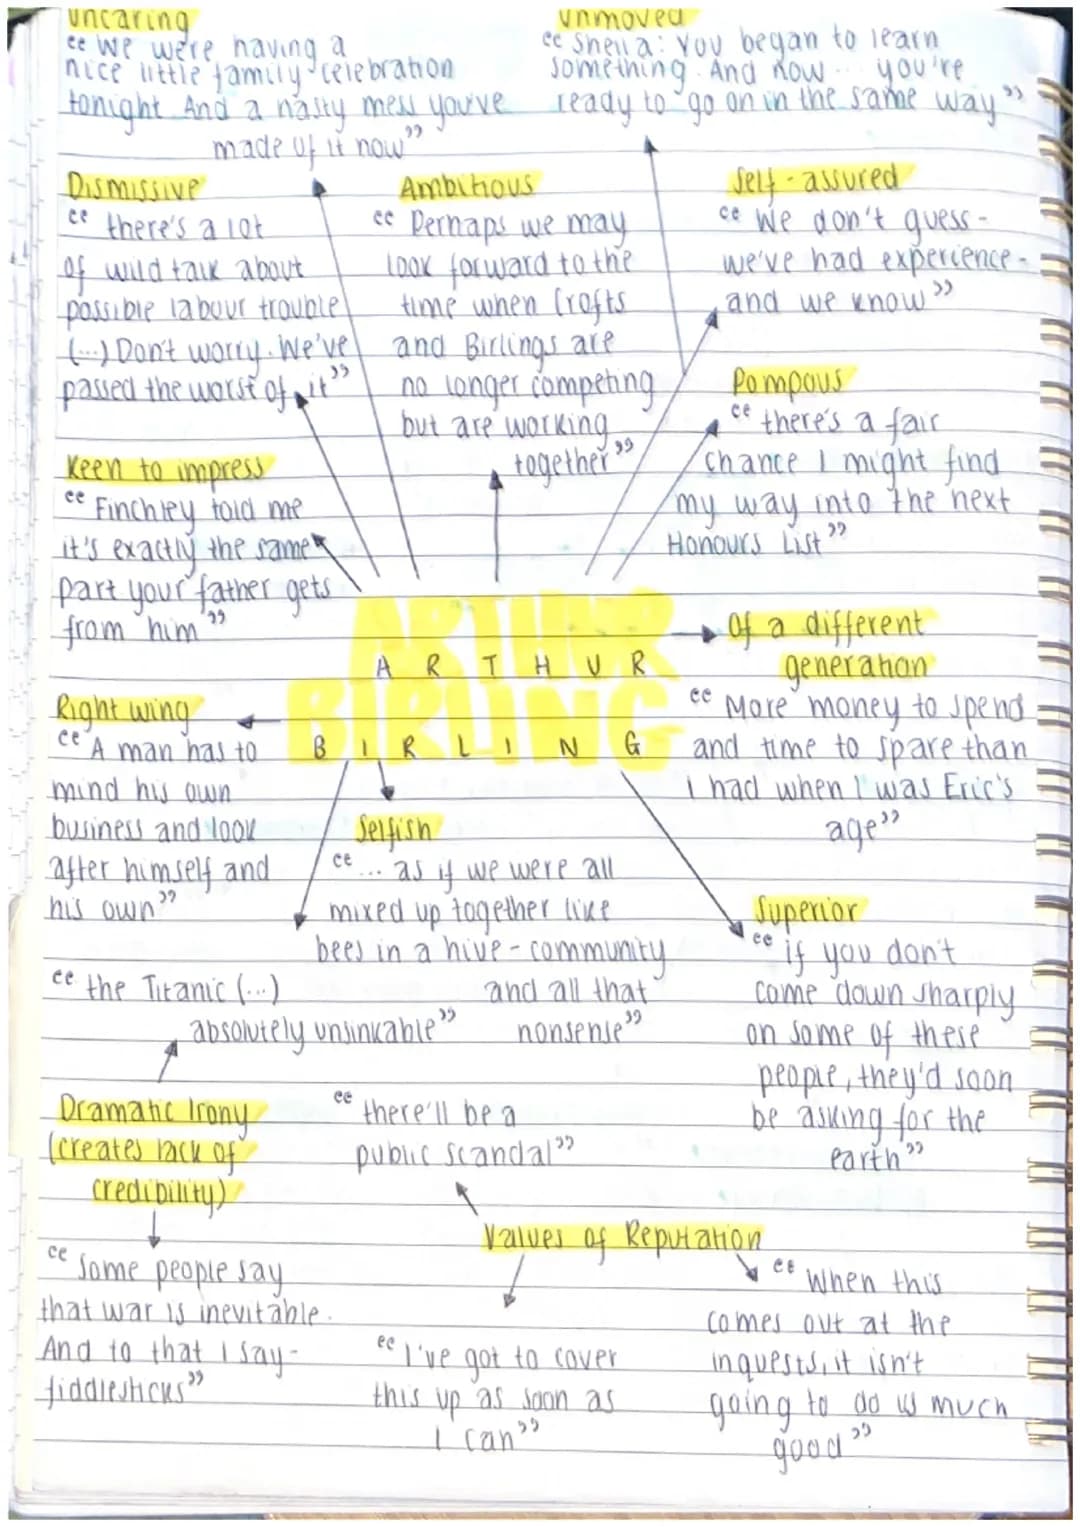 uncaring
"We were having a
nice little family celebration
tonight. And a nasty mess you've
made of it now"
unmoved
"Sheila: you began to learn
something. And now... you're
ready to go on in the same way"
Dismissive
"there's a lot
of wild talk about
possible labour trouble
(...) Don't worry. We've
passed the worst of it"
Ambitious
"Perhaps we may
look forward to the
time when Crofts
and Birlings are
no longer competing
but are working
together"
Self-assured
"We don't guess -
we've had experience -
and we know"
Pompous
"there's a fair
chance I might find
my way into the next
Honours List"
Keen to impress
"Finchley told me
it's exactly the same
part your father gets
from him"
ARTHUR
BIRLING
A R T H U R
B I R L I N G
Of a different
generation
"More money to spend
and time to spare than
I had when I was Eric's
age"
Right wing
"A man has to
mind his own
business and look
after himself and
his own"
Selfish
"... as if we were all
mixed up together like
bees in a hive - community
and all that
nonsense"
Superior
"if you don't
come down sharply
on some of these
people, they'd soon
be asking for the
earth"
"the Titanic (...)
absolutely unsinkable"
Dramatic Irony
(creates lack of
credibility)
"Some people say
that war is inevitable.
And to that I say -
fiddlesticks"
"there'll be a
public scandal"
Values of Reputation
"I've got to cover
this up as soon as
I can"
"When this
comes out at the
inquests, it isn't
going to do us much
good"